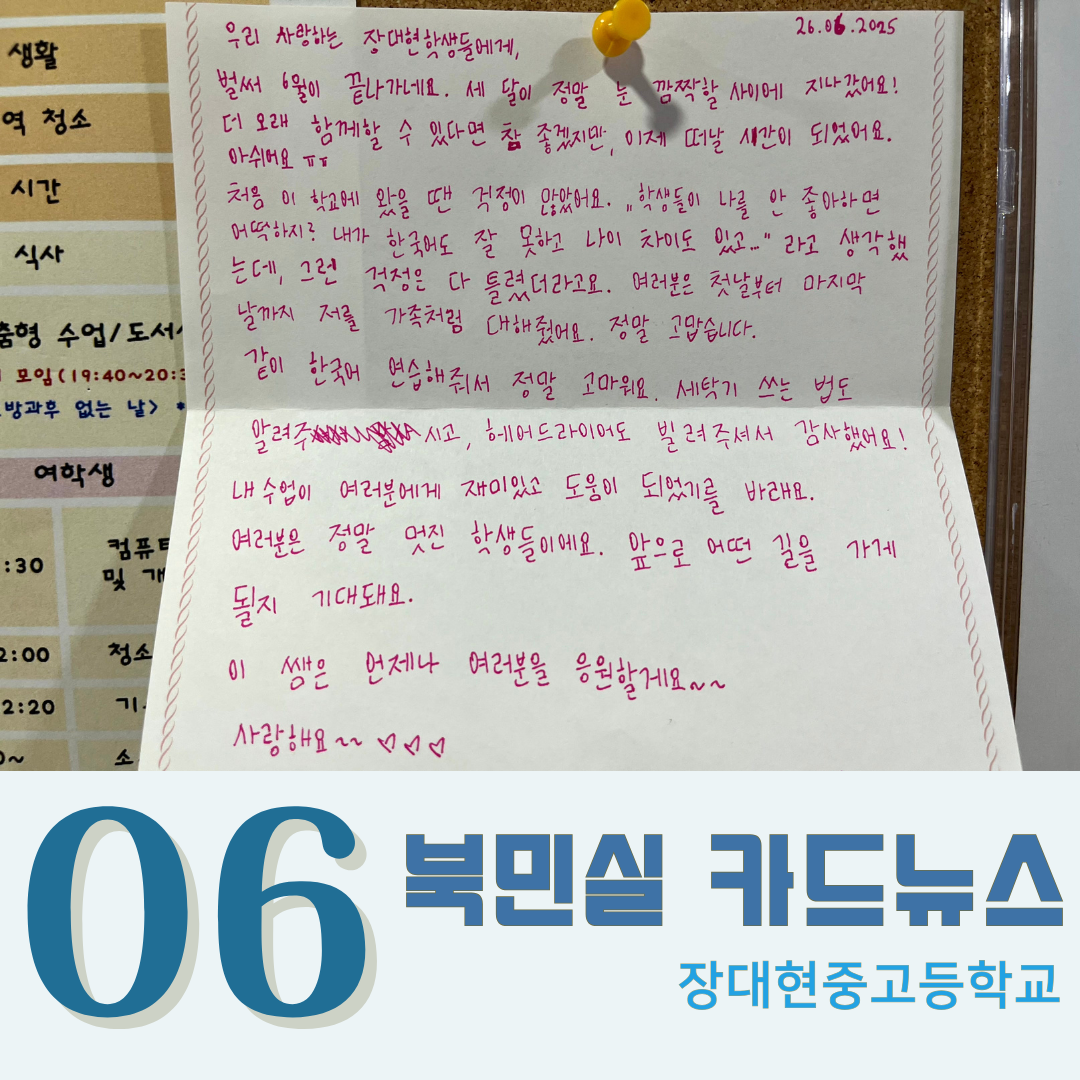 생활
역 청소
시간
식사
춤형 수업/도서
모임(19:40~20:3
방과후 없는 날> *
여학생
:30
컴퓨터
및 개
2:00
청소
2:20
기
0~
소
26.06.2025
우리 사랑하는 장대현학생들에게,
벌써 6월이 끝나가네요. 세 달이 정말 눈 깜짝할 사이에 지나갔어요!
더 오래 함께할 수 있다면 참 좋겠지만, 이제 떠날 시간이 되었어요.
아쉬어요 ㅠㅠ
처음 이 학교에 왔을 땐 걱정이 많았어요. „학생들이 나를 안 좋아하면
어떡하지? 내가 한국어도 잘 못하고 나이 차이도 있고..." 라고 생각했
는데, 그런 걱정은 다 틀렸더라고요. 여러분은 첫날부터 마지막
날까지 저를 가족처럼 대해줬어요. 정말 고맙습니다.
같이 한국어 연습해줘서 정말 고마워요. 세탁기 쓰는 법도
알려주시고, 헤어드라이어도 빌려주셔서 감사했어요!
내 수업이 여러분에게 재미있고 도움이 되었기를 바래요.
여러분은 정말 멋진 학생들이에요. 앞으로 어떤 길을 가게
될지 기대돼요.
이 쌤은 언제나 여러분을 응원할게요~~
사랑해요~~ ♡♡♡
06
북민실 카드뉴스
장대현중고등학교